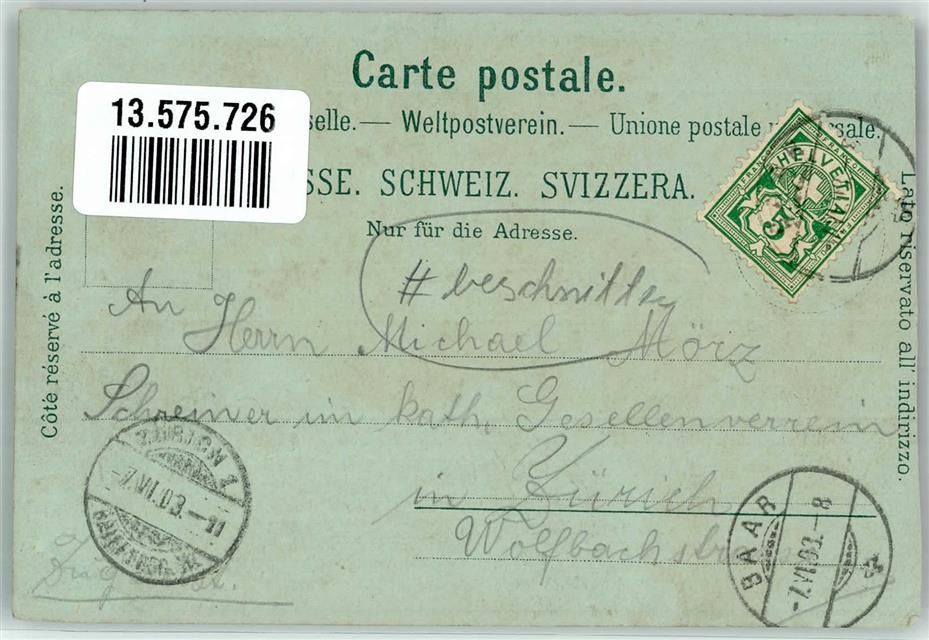 Carte postale.
13.575.726
selle. — Weltpostverein. — Unione postale
SSE. SCHWEIZ. SVIZZERA.
Nur für die Adresse.
Côté réservé à l'adresse.
Lato riservato all' indirizzo.
FRANCO
HELVETIA
5
# beschnitten
An Herrn Michael Mörz
Schreiner im kath. Gesellenverrein
in Zürich
Wolfbachstrasse
ZÜRICH 1
7.VI.03.–11
BAAR
7.VI.03.–8